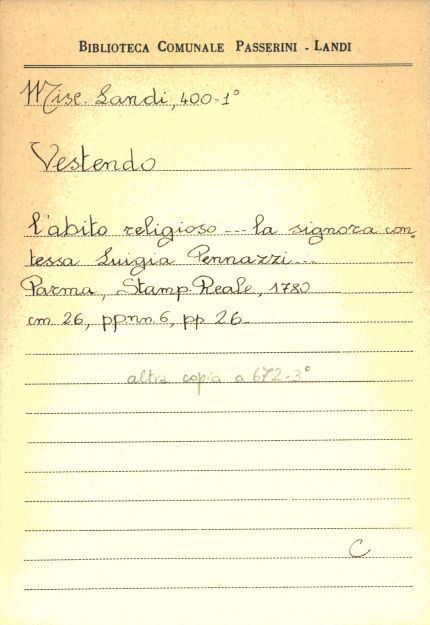 BIBLIOTECA COMUNALE PASSERINI - LANDI
Misc. Landi, 400-1°
Vestendo
l'abito religioso --- la signora con-
tessa Luigia Pennazzi...
Parma, Stamp. Reale, 1780
cm 26, ppnn. 6, pp. 26.
altra copia a 672-3°
C